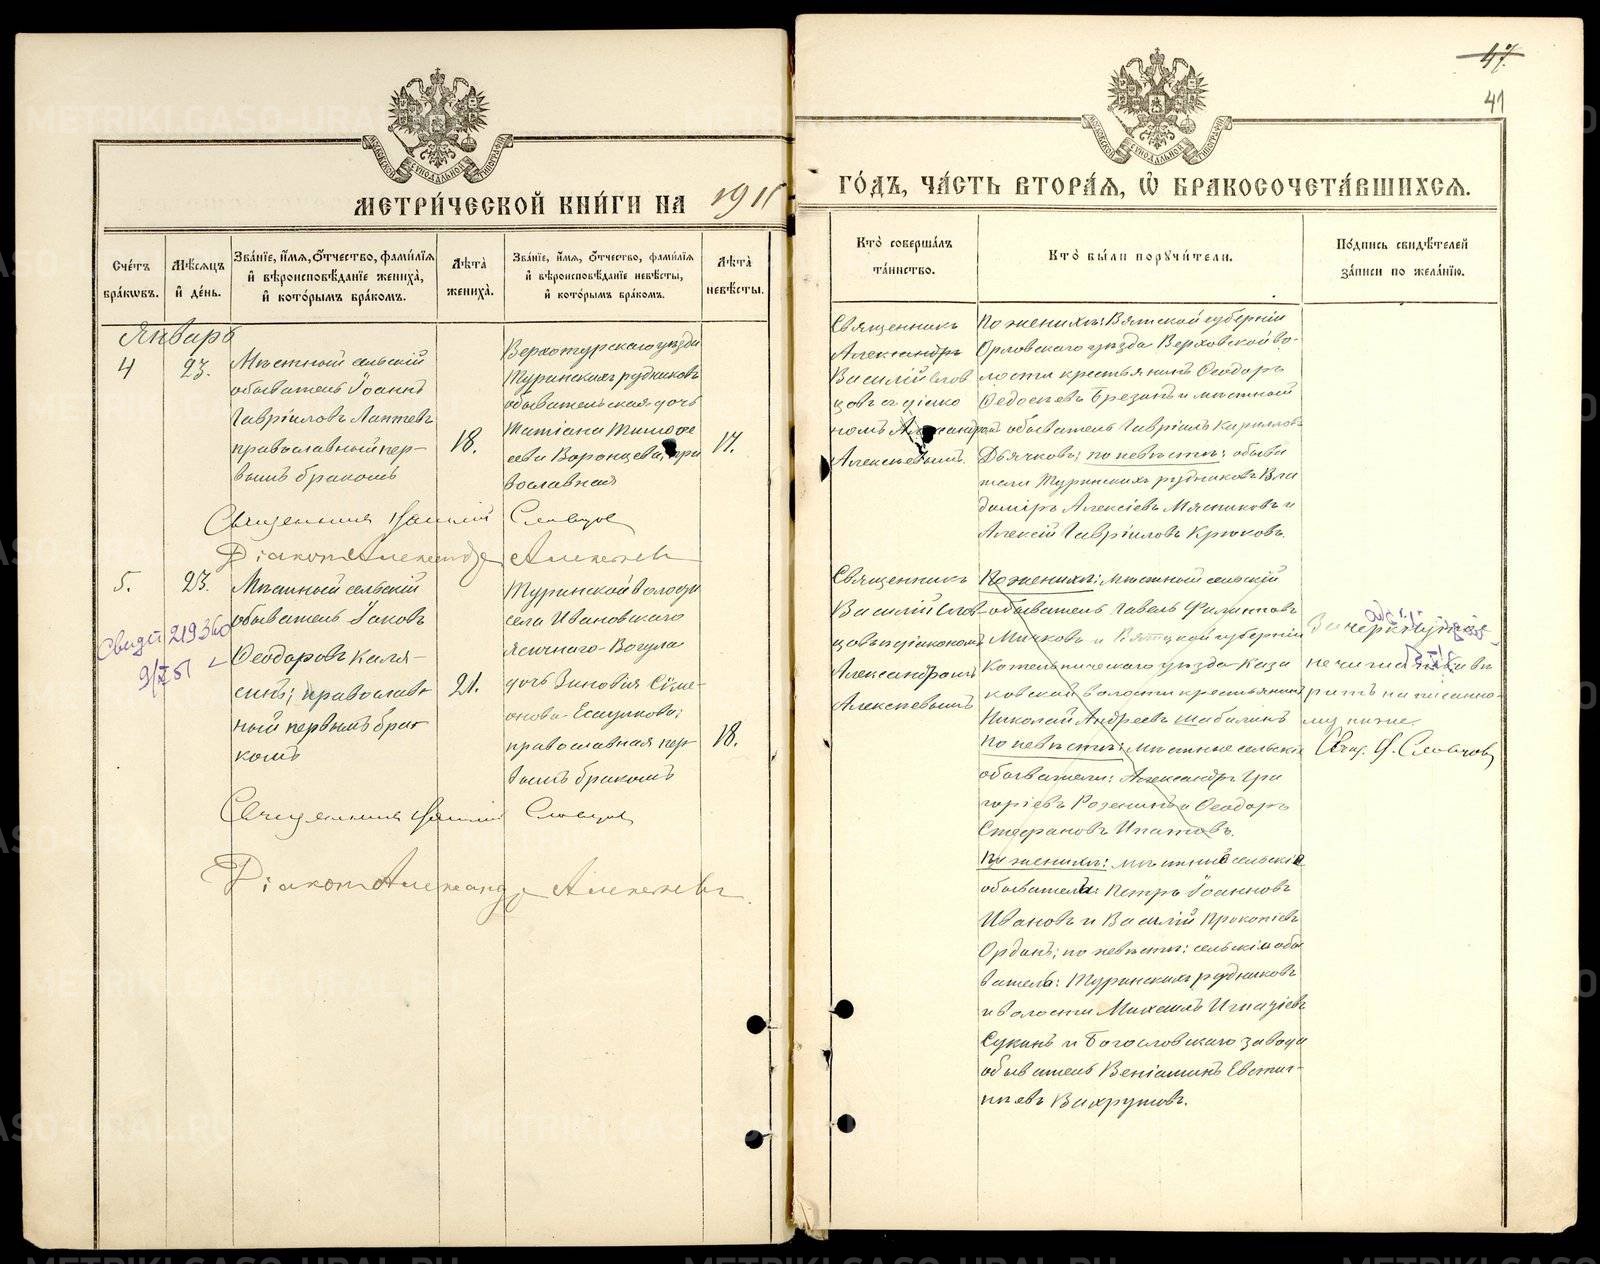 47.
41
МЕТРИ́ЧЕСКОЙ КНИ́ГИ НА 1911
ГО́ДЪ, ЧА́СТЬ ВТОРА́Я, Ѽ БРАКОСОЧЕТА́ВШИХСЯ.
Сче́тъ бра́кѡвъ.
Мѣ́сяцъ и҆ де́нь.
Зва́нїе, и҆́мя, ѻ҆́тчество, фами́лїя и҆ вѣроисповѣ́данїе жениха̀, и҆ кото́рымъ бра́комъ.
Лѣ́та жениха̀.
Зва́нїе, и҆́мя, ѻ҆́тчество, фами́лїя и҆ вѣроисповѣ́данїе невѣ́сты, и҆ кото́рымъ бра́комъ.
Лѣ́та невѣ́сты.
Кто̀ соверша́лъ та́инство.
Кто̀ бы́ли порꙋчи́тели.
По́дпись свидѣ́телей за́писи по жела́нїю.
Январь
4
23.
Мѣстный сельскій
обыватель Іоаннъ
Гавріиловъ Лаптевъ
православный пер-
вымъ бракомъ
18.
Верхотурскаго уѣзда
Туринскихъ рудниковъ
обывательская дочь
Татіана Тимофе
ева Воронцева, пра
вославная
17.
Священникъ
Александръ
Василій Слов
цовъ съ діако
номъ Александромъ
Алексѣевымъ.
По женихѣ: Вятской губерніи
Орловскаго уѣзда Верховской во-
лости крестьянинъ Ѳеодоръ
Ѳедосѣевъ Брезгинъ и мѣстный
обыватель Гавріилъ Кирилловъ
Дьячковъ; по невѣстѣ: обыва
тели Туринскихъ рудниковъ Вла
диміръ Алексіевъ Мясниковъ и
Алексій Гавріиловъ Крюковъ.
Священникъ Словцовъ
Діаконъ Александръ Алексѣевъ
5.
23.
Мѣстный сельскій
обыватель Іаковъ
Ѳеодоровъ Каля-
синъ; православ-
ный первымъ бра-
комъ
21.
Туринской волости
села Ивановскаго
ясачнаго Вогула
дочь Зиновія Симе-
онова Есаулкова;
православная пер-
вымъ бракомъ
18.
Свидет 219360
9/X 51
Священникъ
Василій Слов-
цовъ съ діакономъ
Александромъ
Алексѣевымъ
По женихѣ: мѣстный сельскій
обыватель Павелъ Филипповъ
Мичковъ и Вятской губерніи
Котельническаго уѣзда Каза
ковской волости крестьянинъ
Николай Андреевъ Шабалинъ
По невѣстѣ: мѣстные сельскіе
обыватели: Александръ Гри
горіевъ Розенинъ и Ѳеодоръ
Стефановъ Ипатовъ.
По женихѣ: мѣстные сельскіе
обыватели: Петръ Іоанновъ
Ивановъ и Василій Прокопіевъ
Орданъ; по невѣстѣ: сельскій обы
ватель: Туринскихъ рудниковъ
и волости Михаилъ Игнатіевъ
Сукинъ и Богословскаго завода
обыватель Веніаминъ Евстиг-
нѣевъ Вахрушовъ.
Зачеркнутое
не читать а вѣ
рить написанно-
му ниже.
Свящ. Словцовъ
Священникъ Словцовъ
Діаконъ Александръ Алексѣевъ
METRIKI.GASO-URAL.RU